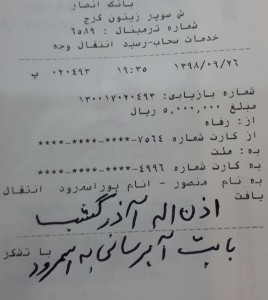 بانک انصار
ش سوپر زیتون کرج
شماره ترمینال : ۶۵۸۹
خدمات سحاب-رسید انتقال وجه
۱۳۹۸/۰۹/۲۶ ۱۹:۳۵ ۰۲۰۴۹۳ پ
شماره بازیابی: ۱۳۰۰۱۷۰۲۰۴۹۳
مبلغ ۵,۰۰۰,۰۰۰ ریال
از: رفاه
از کارت شماره ۷۵۶۴-****-****-****
به: ملت
به کارت شماره ۴۹۹۶-****-****-****
به نام منصور - انام پوراسمرود انتقال
یافت
اذن اله آذرگشسب
با تشکر
بابت آبرسانی به اسمرود